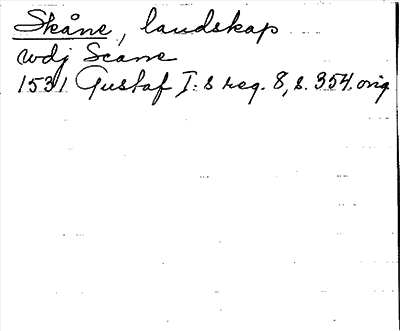 Skåne, landskap
wdj Scane
1531 Gustaf I:s reg. 8, s. 354. orig